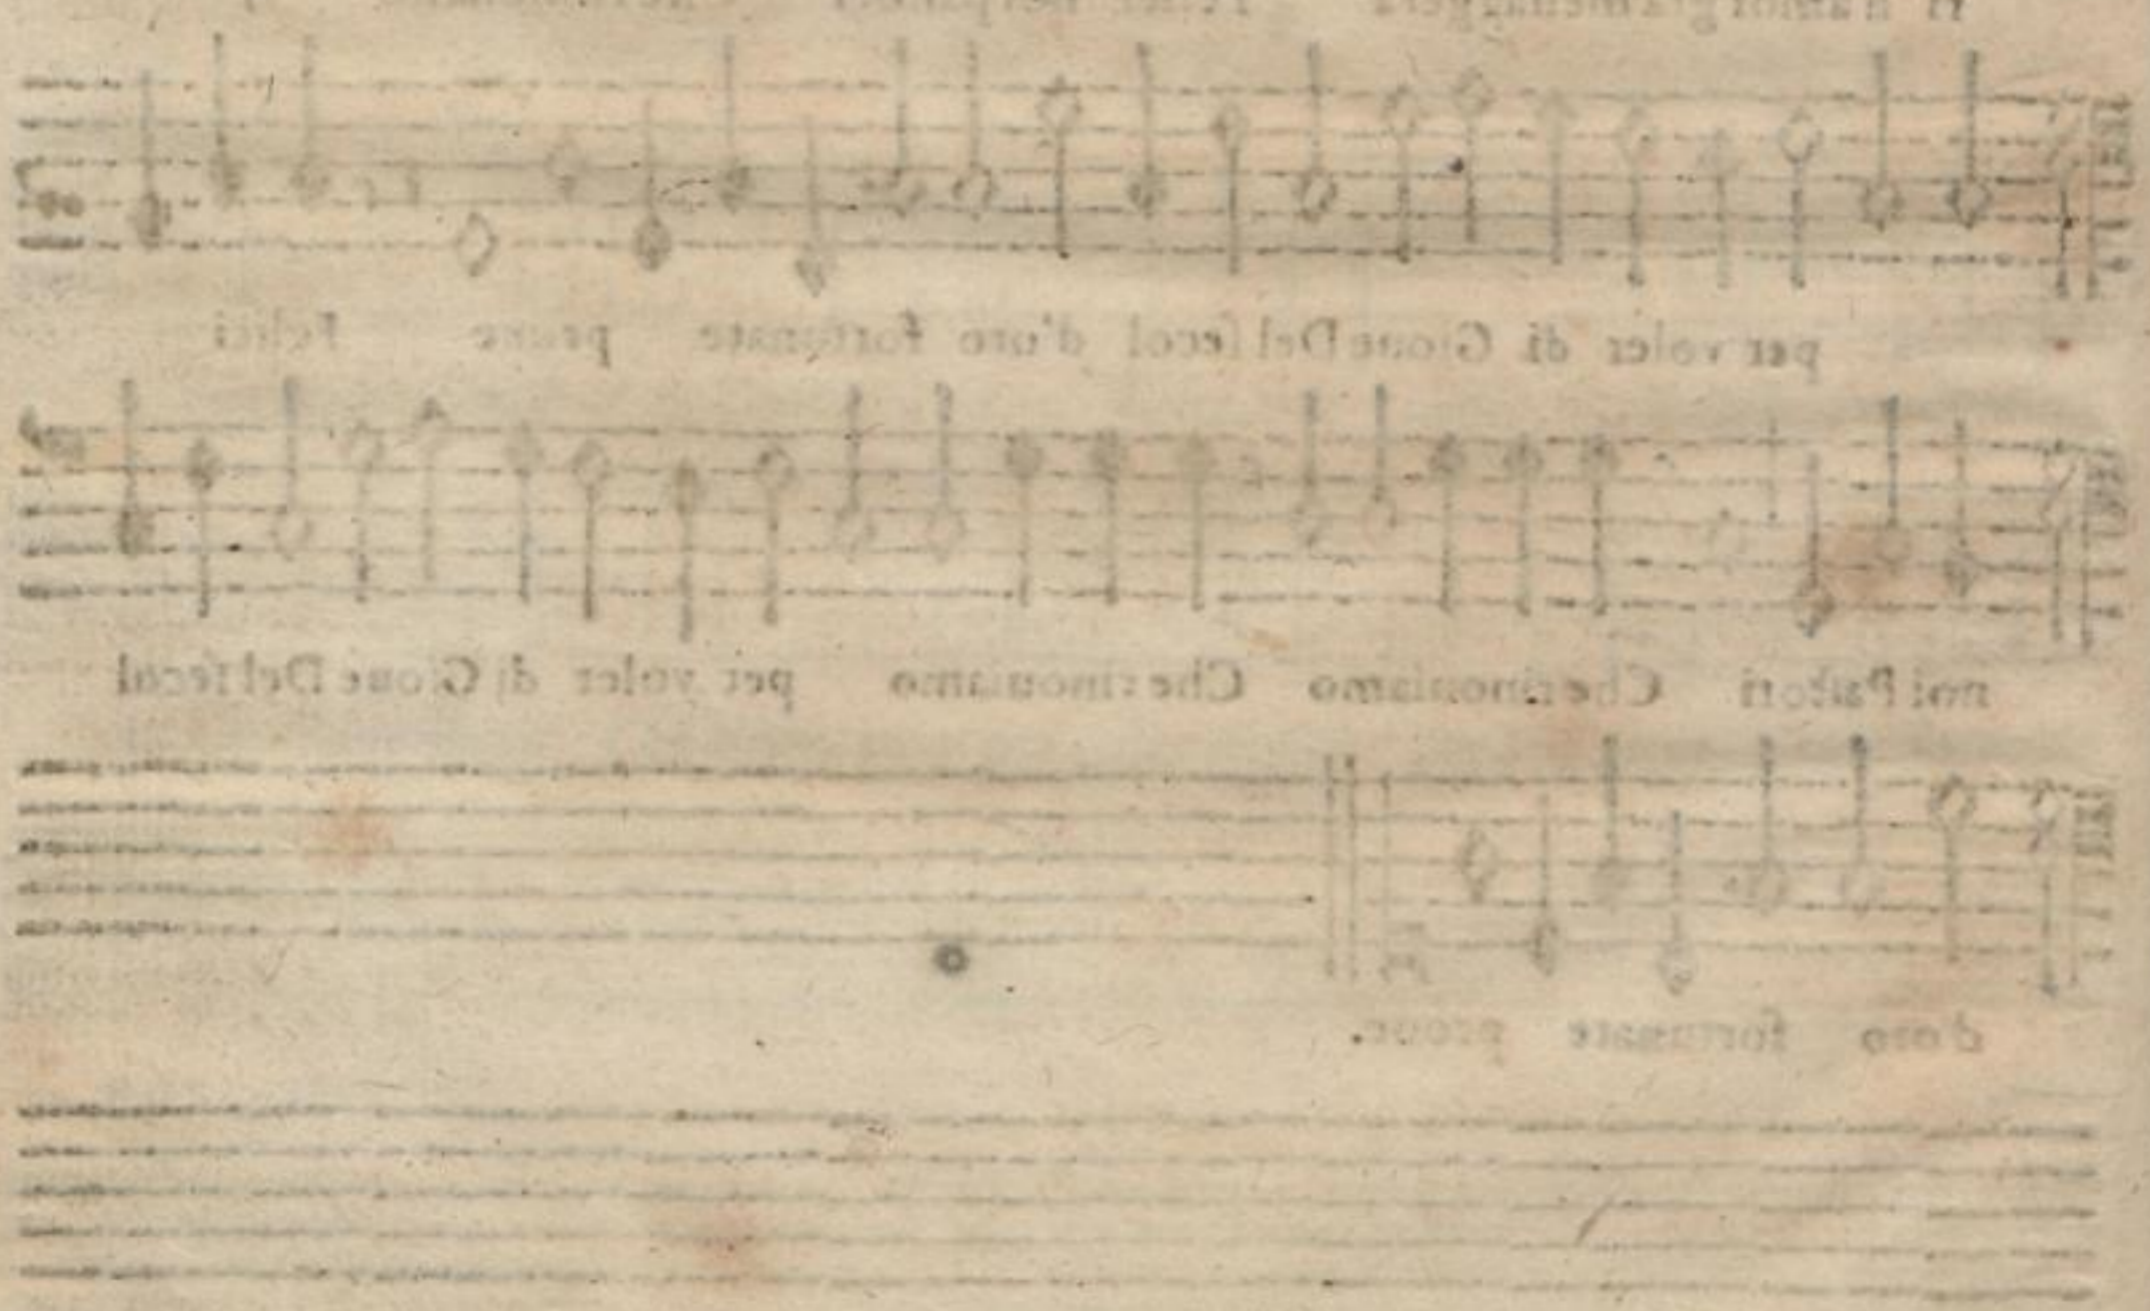 per voler di Gioue Del secol d'oro fortunate proue Felici
noi Pastori Che rinouiamo Che rinouiamo per voler di Gioue Del secol
d'oro fortunate proue.